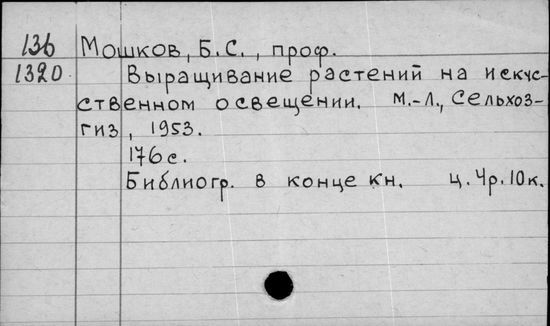 136 Мошков, Б.С., проф.
1320 Выращивание растений на искус-
ственном освещении. М.-Л., Сельхоз-
гиз, 1953.
176с.
Библиогр. в конце кн. ц. 4р. 10к.